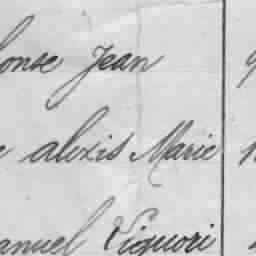 onse Jean
alexis Marie
anuel Liguori